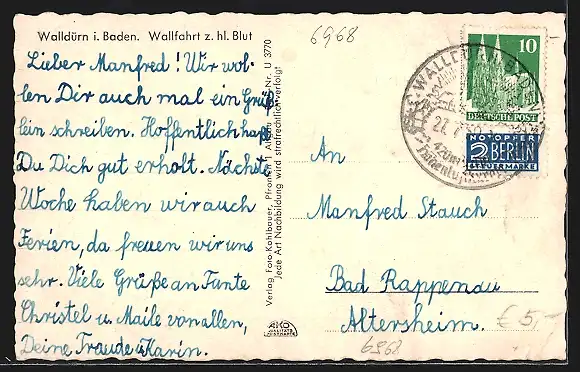 Walldürn i. Baden. Wallfahrt z. hl. Blut
Lieber Manfred! Wir wol-
len Dir auch mal ein Grüß
lein schreiben. Hoffentlich hast
Du Dich gut erholt. Nächste
Woche haben wir auch
Ferien, da freuen wir uns
sehr. Viele Grüße an Tante
Christel u. Maile von allen,
Deine Traude u Karin.
Verlag Foto Kahlbauer, Pfronten i. Allgäu Nr. U 3770
Jede Art Nachbildung wird strafrechtlich verfolgt
AKO
6968
27.7.
10
DEUTSCHE POST
NOTOPFER
2 BERLIN
STEUERMARKE
An
Manfred Stauch
Bad Rappenau
Altersheim.
€ 5,-
6968